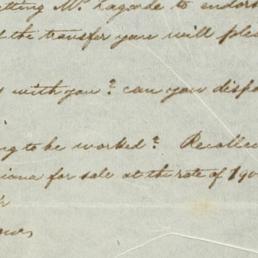 etting Mr. Lagarde to endor
the transfer you will ple
with you? can you disp
ng to be worked? Recolle
iana for sale at the rate of 190